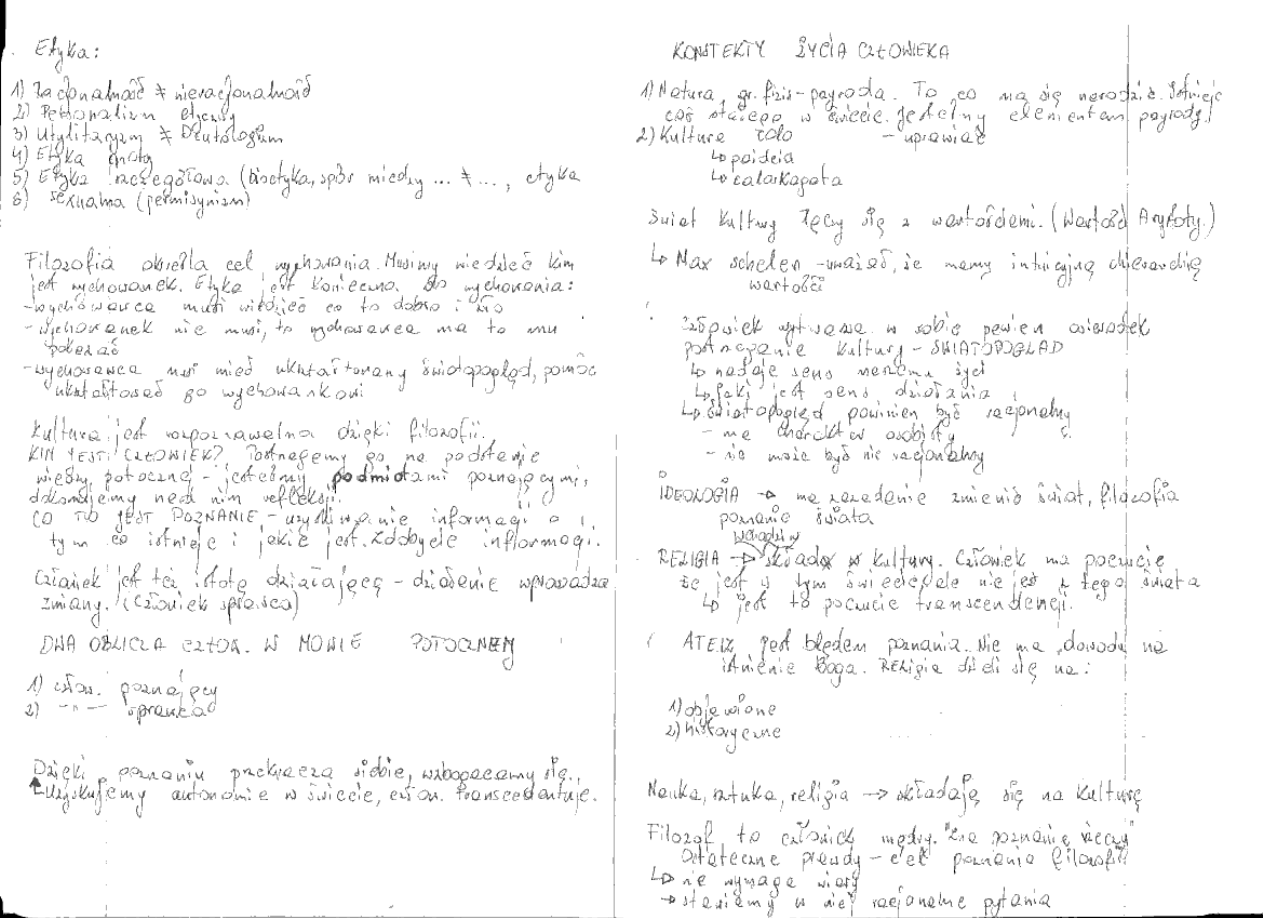 Etyka:
1) Racjonalność ≠ nieracjonalność
2) Personalizm etyczny
3) Utylitaryzm ≠ Deutologizm
4) Etyka cnoty
5) Etyka szczegółowa (bioetyka, spór między ... ≠ ..., etyka
6) sexualna (permisynizm)
Filozofia określa cel wychowania. Musimy wiedzieć kim
jest wychowanek. Etyka jest konieczna do wychowania:
- wychowawca musi wiedzieć co to dobro i zło
- wychowanek nie musi, to wychowawca ma to mu
pokazać
- wychowawca musi mieć ukształtowany światopogląd, pomóc
ukształtować go wychowankowi
Kultura jest rozpoznawalna dzięki filozofii.
KIM JEST CZŁOWIEK? Postrzegamy go na podstawie
wiedzy potocznej - jesteśmy podmiotami poznającymi,
dokonujemy nad nim refleksji.
CO TO JEST POZNANIE - uzyskiwanie informacji o
tym co istnieje i jakie jest. Zdobycie informacji.
Człowiek jest też istotą działającą - działanie wprowadza
zmiany. (Człowiek sprawca)
DWA OBLICZA CZŁOW. W MOWIE POTOCZNEJ
1) człow. poznający
2) -"- sprawca
Dzięki poznaniu przekracza siebie, wzbogacamy się.
Uzyskujemy autonomie w świecie, człow. transcedentuje.
KONSTEKTY ŻYCIA CZŁOWIEKA
1) Natura, gr. fizis - pzyroda. To, co ma się narodzić. Istnieje
coś stałego w świecie. Jesteśmy elementem pzyrody.
2) Kultura colo - uprawiać
↳ paideia
↳ calaskagata
Świat kultury łączy się z wartościami. (Wartość Arystoty.)
↳ Max schelen - uważał, że mamy intuicyjną chierarchię
wartości
Człowiek wytwarza w sobie pewien
postrzeganie kultury - ŚWIATOPOGLĄD
↳ nadaje sens naszemu życi
↳ jaki jest sens działania
↳ światopogląd powinien być racjonalny
- ma charakter osobisty
- nie może być nie racjonalny
IDEOLOGIA → ma zazadanie zmienić świat, filozofia
poznanie świata
RELIGIA → składa w kultury. Człowiek ma poczucie
że jest w tym świecie, ale nie jest z tego świata
↳ jest to poczucie transcendencji.
ATEIZ jest błędem poznania. Nie ma dowodu na
istnienie Boga. Religia dzieli się na:
1) objawione
2) historyczne
Nauka, sztuka, religia → składają się na kulturę
Filozof to człowiek mądry. "Zna poznanie rzeczy"
Ostateczne prawdy - cel poznania filozofii
↳ nie wymaga wiary
→ stawiamy w niej racjonalne pytania